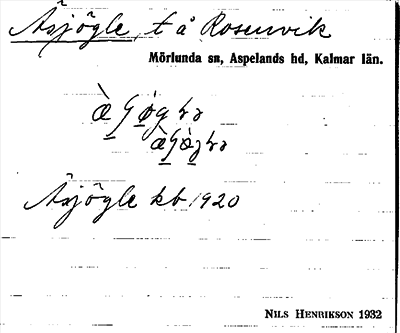 Äsjögle, t å Rosenvik
Mörlunda sn, Aspelands hd, Kalmar län.
Äsjögle kb 1920
NILS HENRIKSON 1932